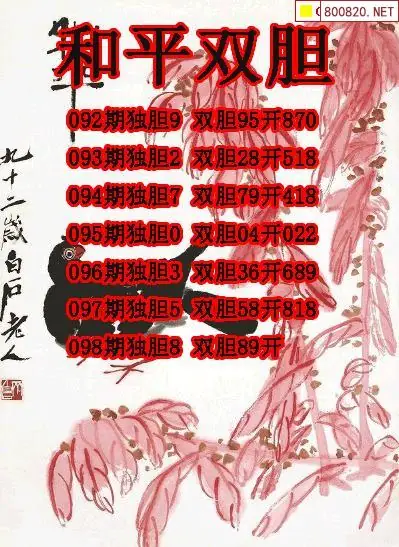 800820.NET
和平双胆
092期独胆9 双胆95开870
093期独胆2 双胆28开518
094期独胆7 双胆79开418
095期独胆0 双胆04开022
096期独胆3 双胆36开689
097期独胆5 双胆58开818
098期独胆8 双胆89开
九十二岁白石老人